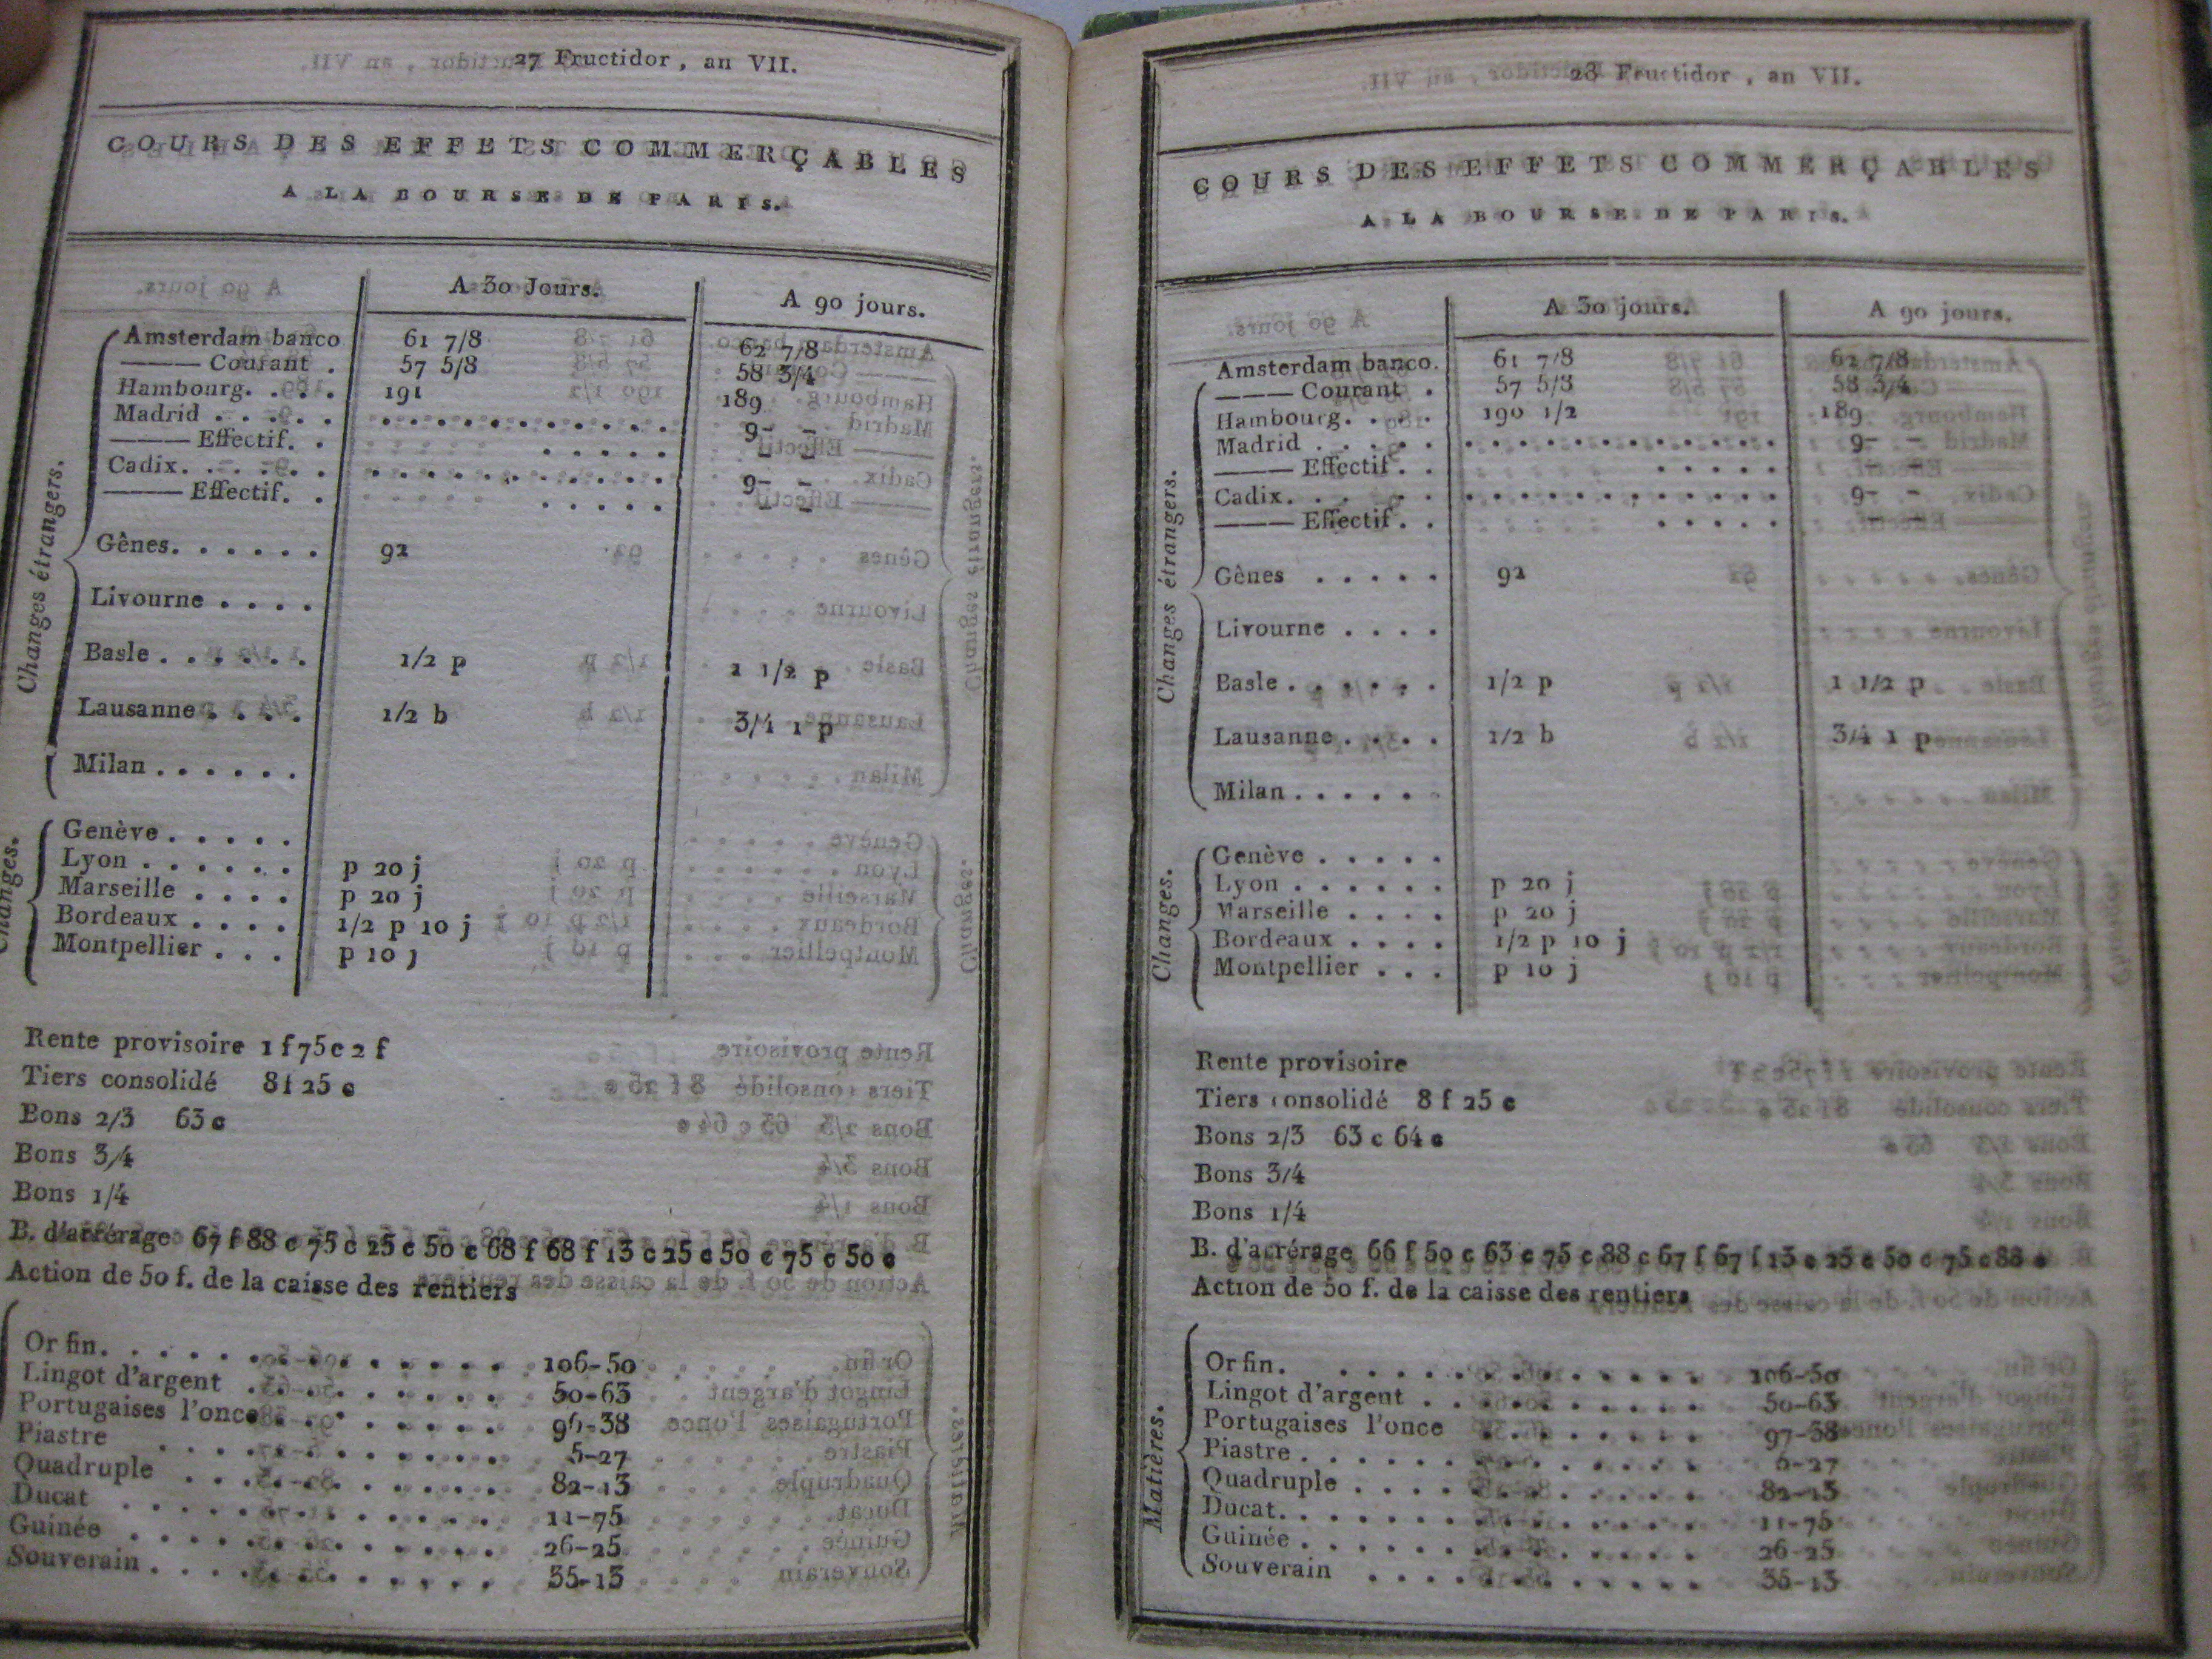 27 Fructidor, an VII.
COURS DES EFFETS COMMERÇABLES
A LA BOURSE DE PARIS.
A 30 Jours. A 90 jours.
Changes étrangers.
Amsterdam banco 61 7/8 62 7/8
——— Courant . 57 5/8 58 3/4
Hambourg. . . . 191 189
Madrid . . . . . . . . . . . . . . . . . 9- -
——— Effectif. . . . . . . - -
Cadix. . . . . . . . . . . . . . . . . . 9- -
——— Effectif. . . . . . . - -
Gênes. . . . . . 92
Livourne . . . .
Basle . . . . . . 1/2 p 1 1/2 p
Lausanne . . . . 1/2 b 3/4 1 p
Milan . . . . . .
Changes.
Genève . . . . .
Lyon . . . . . . p 20 j
Marseille . . . . p 20 j
Bordeaux . . . . 1/2 p 10 j
Montpellier . . . p 10 j
Rente provisoire 1 f 75 c 2 f
Tiers consolidé 8 f 25 c
Bons 2/3 63 c
Bons 3/4
Bons 1/4
B. d'arrérage 67 f 88 c 75 c 25 c 50 c 68 f 68 f 13 c 25 c 50 c 75 c 50 c
Action de 50 f. de la caisse des rentiers
Or fin. . . . . . . . . . . . . 106-50
Lingot d'argent . . . . . . . . . 50-63
Portugaises l'once . . . . . . . . 96-38
Piastre . . . . . . . . . . . . 5-27
Quadruple . . . . . . . . . . . 82-13
Ducat . . . . . . . . . . . . 11-75
Guinée . . . . . . . . . . . . 26-25
Souverain . . . . . . . . . . . 35-13
28 Fructidor, an VII.
COURS DES EFFETS COMMERÇABLES
A LA BOURSE DE PARIS.
A 30 jours. A 90 jours.
Changes étrangers.
Amsterdam banco. 61 7/8 62 7/8
——— Courant . 57 5/8 58 3/4
Hambourg. . . . 190 1/2 189
Madrid . . . . . . . . . . . . . . . . . 9- -
——— Effectif . . . . . . .
Cadix. . . . . . . . . . . . . . . . . . 9- -
——— Effectif . . . . . . .
Gênes . . . . . 92
Livourne . . . .
Basle . . . . . . 1/2 p 1 1/2 p
Lausanne . . . . 1/2 b 3/4 1 p
Milan . . . . . .
Changes.
Genève . . . . .
Lyon . . . . . . p 20 j
Marseille . . . . p 20 j
Bordeaux . . . . 1/2 p 10 j
Montpellier . . . p 10 j
Rente provisoire
Tiers consolidé 8 f 25 c
Bons 2/3 63 c 64 c
Bons 3/4
Bons 1/4
B. d'arrérage 66 f 50 c 63 c 75 c 88 c 67 f 67 f 13 c 25 c 50 c 75 c 88 c
Action de 50 f. de la caisse des rentiers
Matières.
Or fin. . . . . . . . . . . . . 106-50
Lingot d'argent . . . . . . . . . 50-63
Portugaises l'once . . . . . . . 97-38
Piastre . . . . . . . . . . . . 5-27
Quadruple . . . . . . . . . . . 82-13
Ducat. . . . . . . . . . . . . 11-75
Guinée . . . . . . . . . . . . 26-25
Souverain . . . . . . . . . . . 35-13